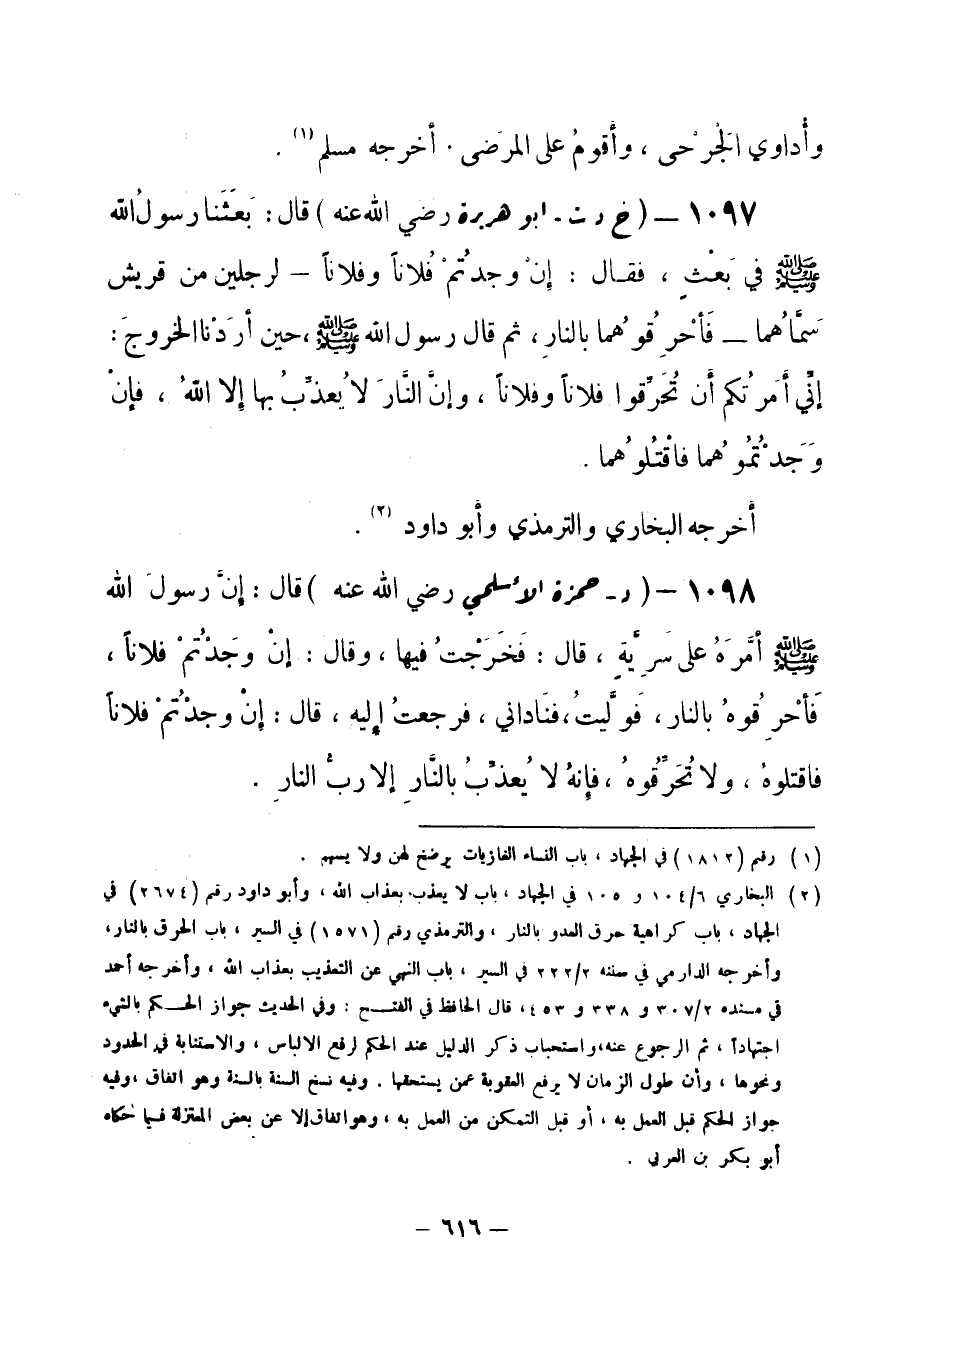 وأُداوي الجَرْحى ، وأَقومُ على المرَضى . أخرجه مسلم (١) .
١٠٩٧ – ( خ د ت - ابو هريرة رضي الله عنه ) قال : بَعَثَنا رسولُ الله
ﷺ في بَعْثٍ ، فقال : إِنْ وجدتُمْ فُلاناً وفلاناً – لرجلين من قريش
سَمَّاُهما – فَأَحْرِقُوُهما بالنارِ ، ثم قال رسول الله ﷺ ، حين أَرَدْنا الخروجَ :
إِنِّي أَمَرْتُكم أَن تُحَرِّقوا فلاناً وفلاناً ، وإِنَّ النَّارَ لا يُعذِّبُ بها إِلا اللهُ ، فإِنْ
وَجَدْتُمُوُهما فاقْتُلوُهما .
أَخرجه البخاري والترمذي وأَبو داود (٢) .
١٠٩٨ – ( د - حمزة الأسلمي رضي الله عنه ) قال : إِنَّ رسولَ الله
ﷺ أَمَّرَهُ على سَرِيَّةٍ ، قال : فَخَرَجْتُ فيها ، وقال : إِنْ وَجَدْتُمْ فلاناً ،
فَأَحْرِقُوهُ بالنار ، فَوَلَّيتُ ، فنَاداني ، فرجعتُ إِليه ، قال : إِنْ وجدْتُمْ فلاناً
فاقتلوهُ ، ولا تُحَرِّقُوهُ ، فإِنهُ لا يُعذِّبُ بالنَّارِ إِلا ربُّ النارِ .
(١) رقم (١٨١٢) في الجهاد ، باب النساء الغازيات يرضخ لهن ولا يسهم .
(٢) البخاري ١٠٤/٦ و ١٠٥ في الجهاد ، باب لا يعذب بعذاب الله ، وأبو داود رقم (٢٦٧٤) في
الجهاد ، باب كراهية حرق العدو بالنار ، والترمذي رقم (١٥٧١) في السير ، باب الحرق بالنار ،
وأخرجه الدارمي في سننه ٢٢٢/٢ في السير ، باب النهي عن التعذيب بعذاب الله ، وأخرجه أحمد
في مسنده ٣٠٧/٢ و ٣٣٨ و ٤٥٣ ، قال الحافظ في الفتح : وفي الحديث جواز الحكم بالشيء
اجتهاداً ، ثم الرجوع عنه ، واستحباب ذكر الدليل عند الحكم لرفع الالباس ، والاستنابة في الحدود
ونحوها ، وأن طول الزمان لا يرفع العقوبة عمن يستحقها . وفيه نسخ السنة بالسنة وهو اتفاق ، وفيه
جواز الحكم قبل العمل به ، أو قبل التمكن من العمل به ، وهو اتفاق إلا عن بعض المعتزلة فيما حكاه
أبو بكر بن العربي .
– ٦١٦ –